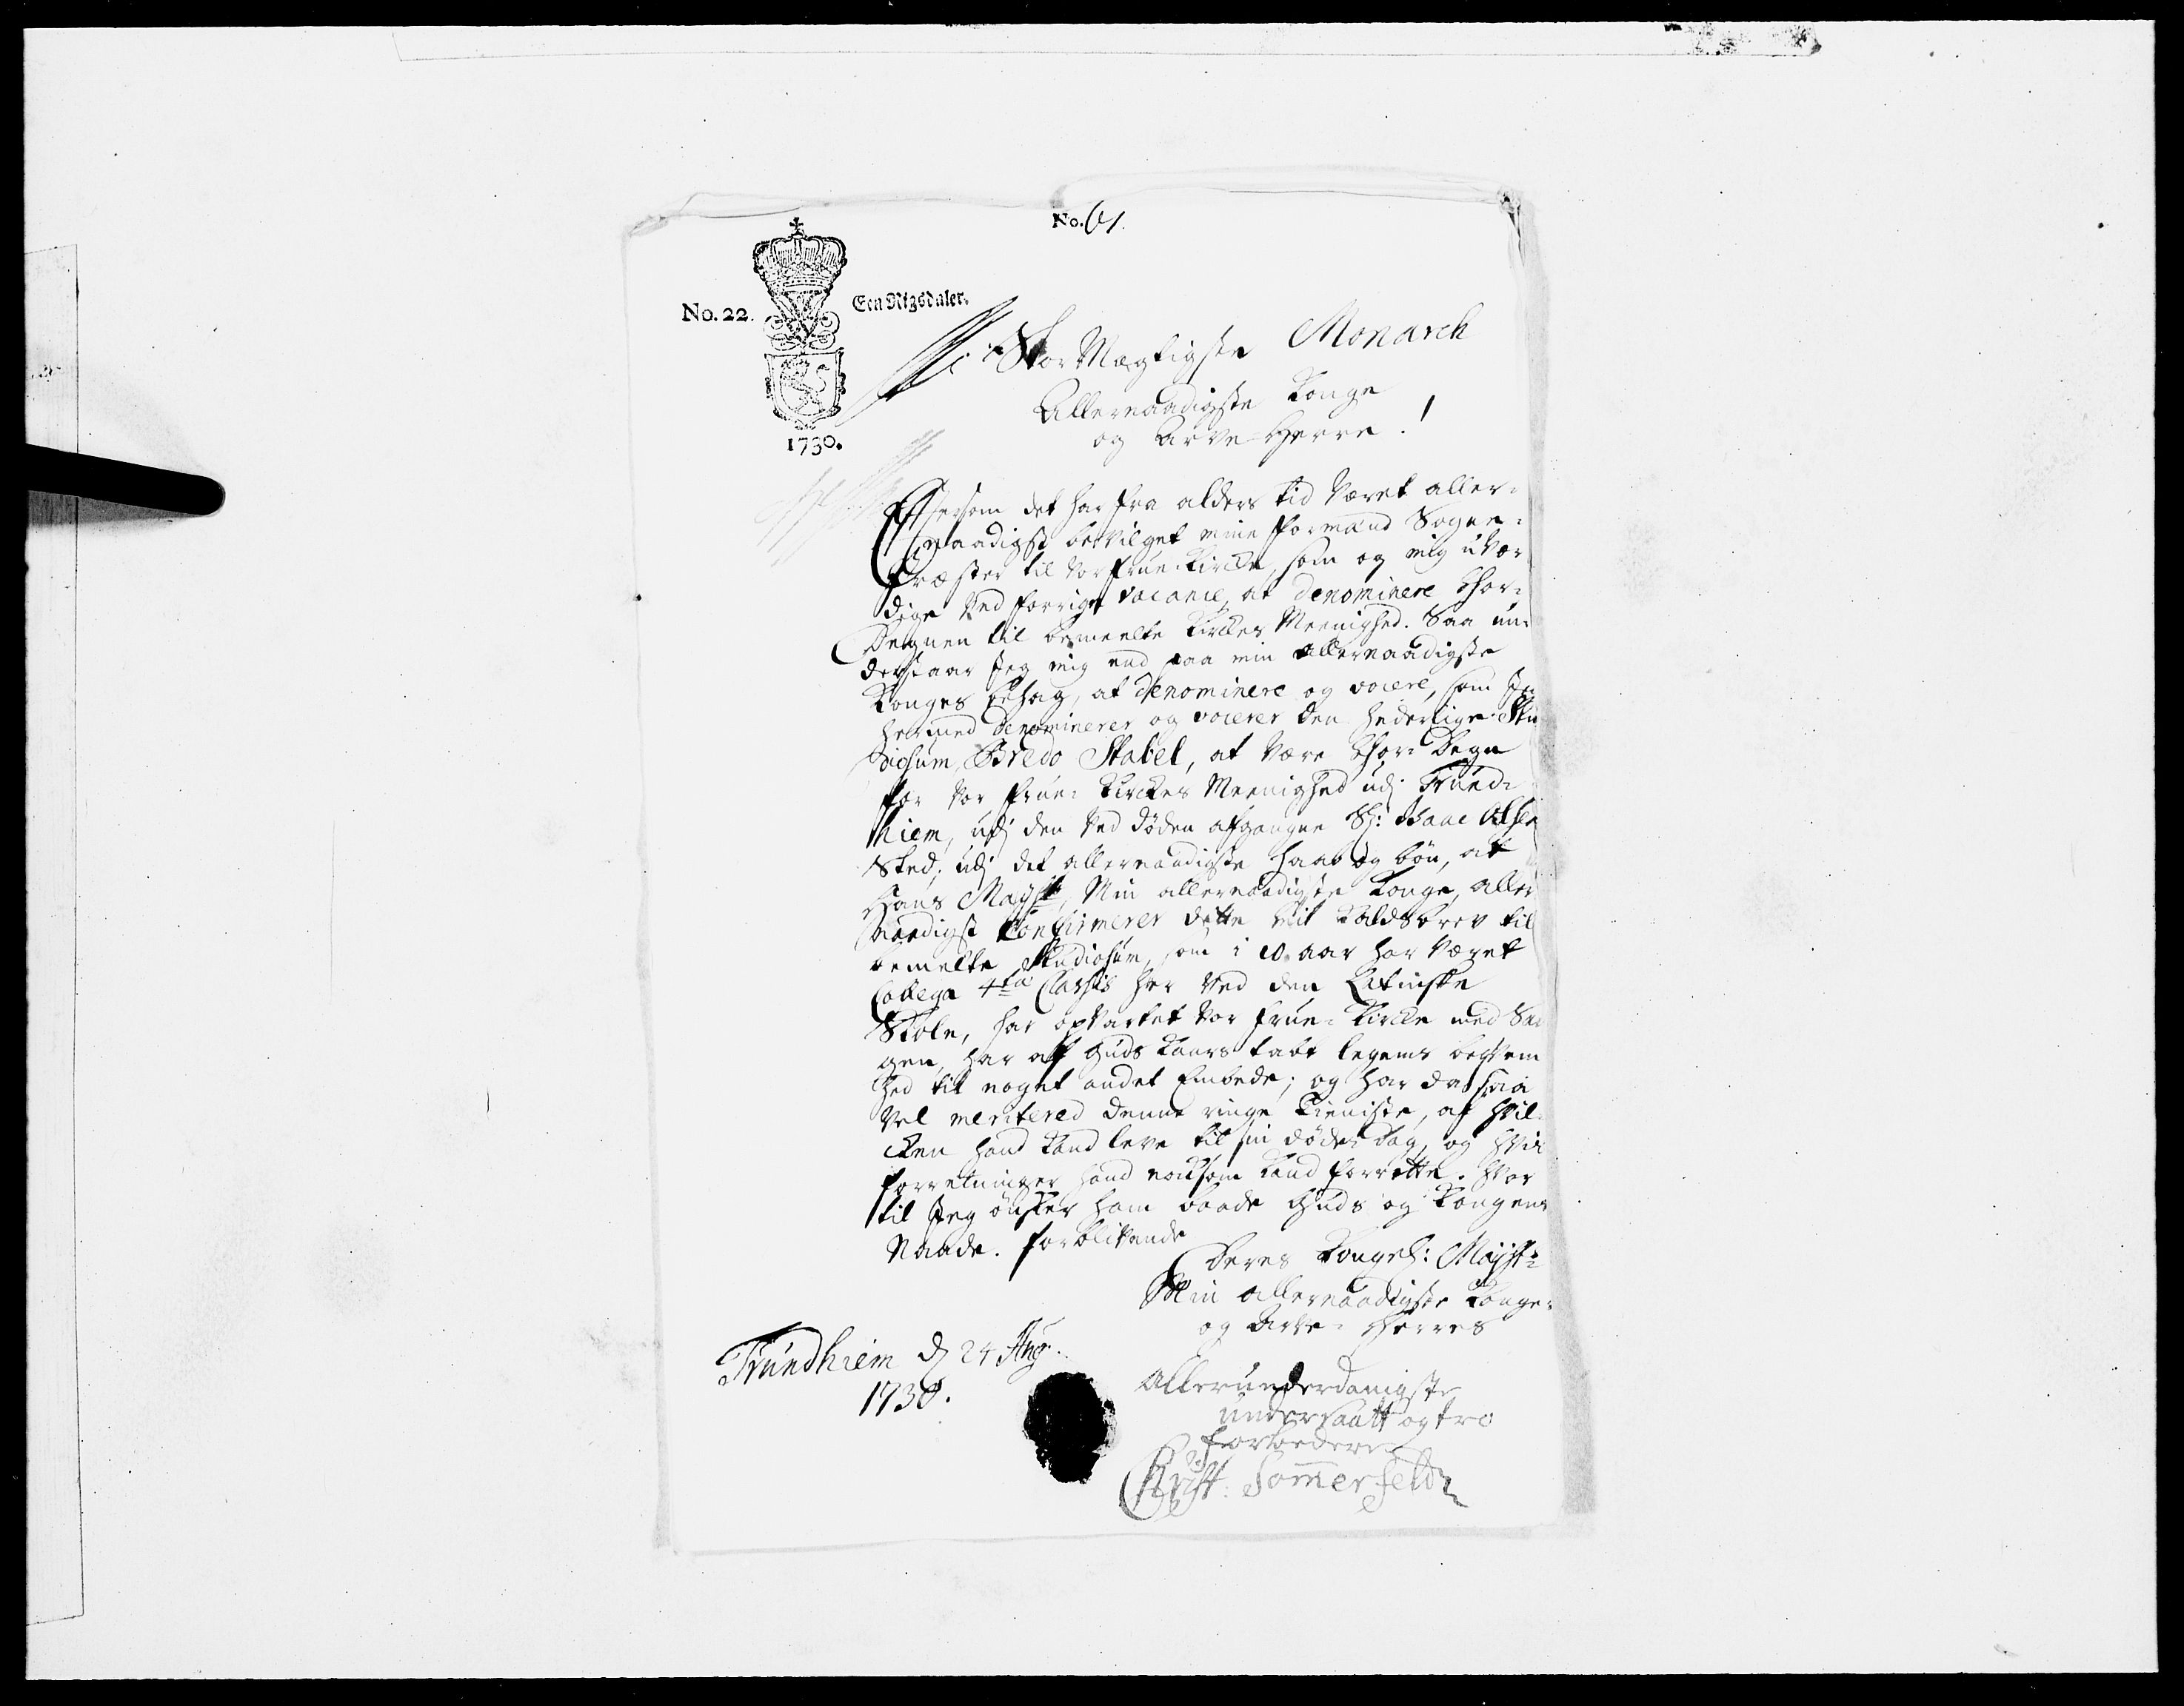 No. 61.
No. 22.
Een Rigsdaler.
1730.
StorMægtigste Monarch
Allernaadigste Konge
og Arve-Herre!
Eftersom det har fra alders tid været aller-
naadigst bevilget mine Formænd Sogne-
Præster til Vor Frue-Kircke, som og mig uvær-
dige ved forrige vacance, at denominere Chor-
Degnen til bemeelte Kirckes Meenighed. Saa un-
derstaar Jeg mig end paa min Allernaadigste
Konges behag, at denominere og vocere, som Jeg
hermed denominerer og vocerer den hederlige Stu
diosum, Bredo Stabel, at være Chor-Degn
for Vor Frue-Kirckes Meenighed udj Trund-
hiem, udj den ved døden afgangne Sl: Isaac
Sted; udj det allernaadigste haab og bøn, at
Hans Mayst, Min allernaadigste Konge, aller
naadigst Confirmerer dette mit Kaldsbrev til
bemelte Studiosum, som i 10 aar har været
Collega 4ta Classis her ved den Latinske
Skole, har opvartet Vor Frue-Kircke med San
gen, har af Guds Kaars tabt legems beqvem
hed til noget andet Embede; og har da saa
vel meritered denne ringe tieniste, af hvil-
cken hand kand leve til sin døde-dag, og hvis
forretninger hand noksom kand forrette. Hvor
til Jeg ønsker ham baade Guds og Kongens
Naade. forblivende
Deres Kongel: Mayst:
Min allernaadigste Konges
og Arve-Herres
Trundhiem d 24 Aug:
1730.
Allerunderdanigste
undersaatt og tro
forbedere
Christ: Sommerfeldt